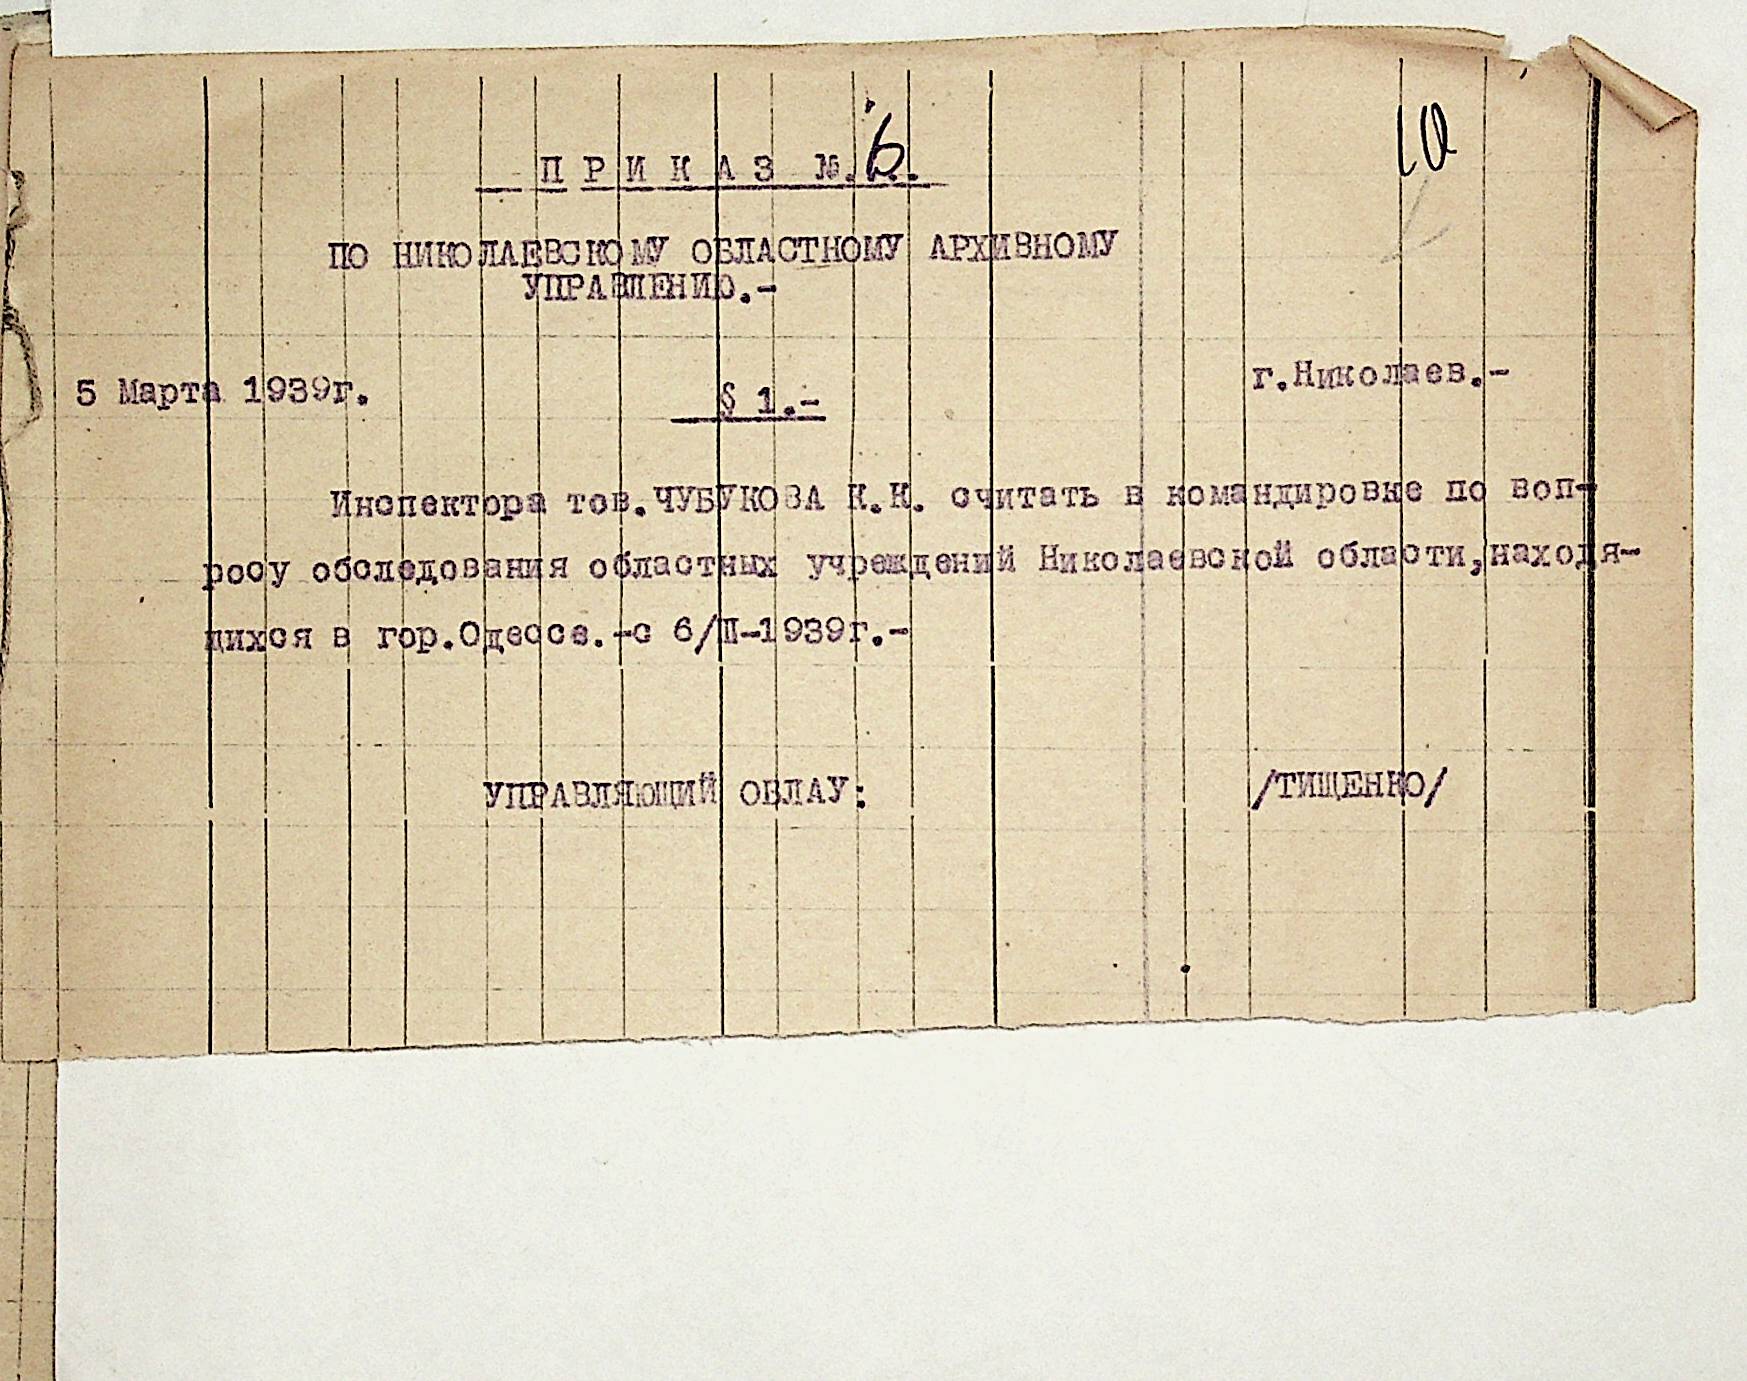 10
ПРИКАЗ №.6.
ПО НИКОЛАЕВСКОМУ ОБЛАСТНОМУ АРХИВНОМУ
УПРАВЛЕНИЮ.-
5 Марта 1939г. § 1.- г.Николаев.-
Инспектора тов.ЧУБУКОВА К.К. считать в командировке по воп-
росу обследования областных учреждений Николаевской области,находя-
щихся в гор.Одессе.-с 6/Ш-1939г.-
УПРАВЛЯЮЩИЙ ОБЛАУ: /ТИЩЕНКО/